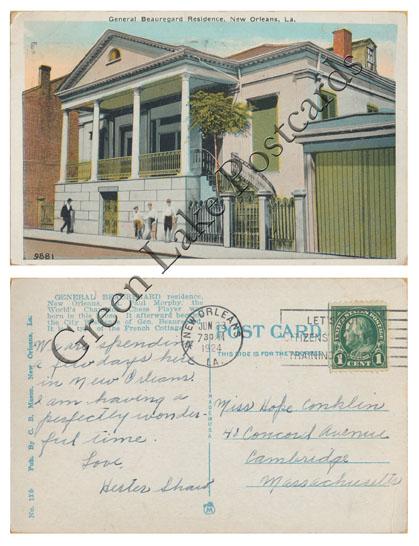 General Beauregard Residence, New Orleans, La.
9881
Green Lake Postcards
GENERAL BEAUREGARD residence,
New Orleans, Paul Morphy, the
World's Champion Chess Player was
born in this. It afterward became
the City of Gen. Beauregard.
the French Cottage
No. 120 Pub. By C. B. Mason, New Orleans, La.
We are spending
a few days here
in New Orleans.
I am having a
perfectly wonder-
ful time.
Love,
Hester Shaw
NEW ORLEANS
JUN
7 30
1924
LA.
LET'S
CITIZENS
TRAINING
POST CARD
THIS SIDE IS FOR THE ADDRESS
1 CENT 1
Miss Hope Conklin
42 Concord Avenue
Cambridge
Massachusetts